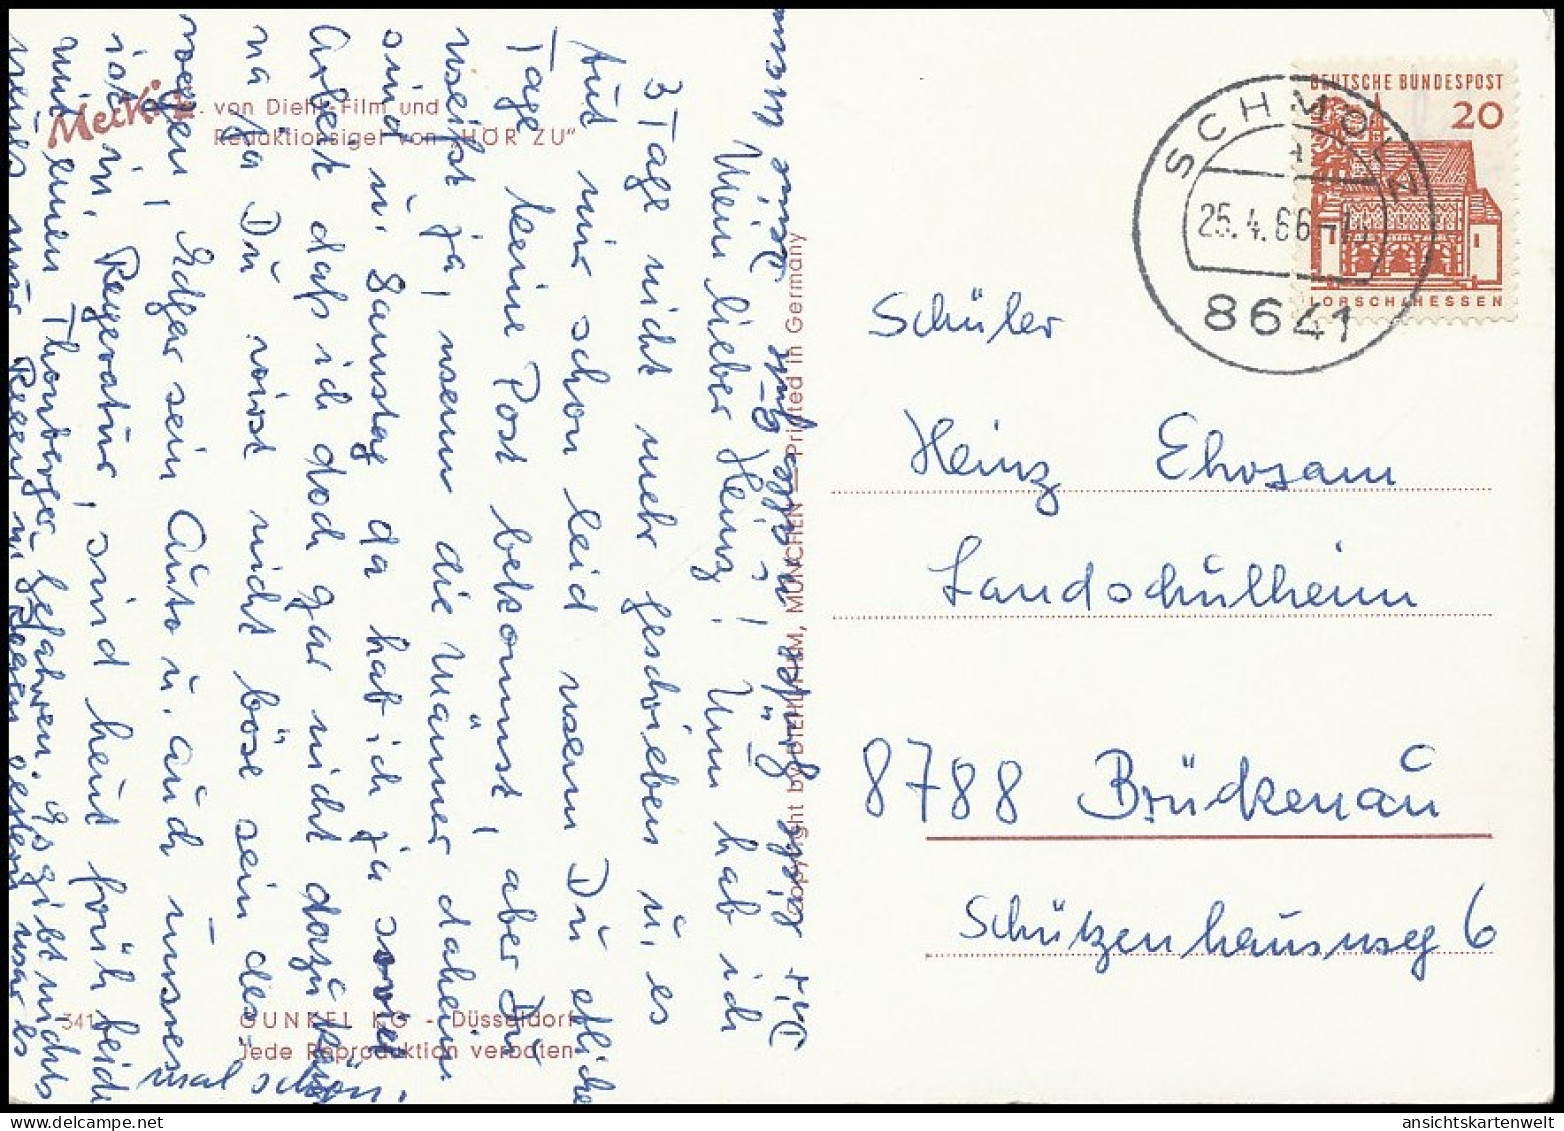 Mein lieber Heinz! Nun hab ich
3 Tage nicht mehr geschrieben u. es
tut mir schon leid wenn Du etliche
Tage keine Post bekommst, aber Du
weißt ja, wenn die Männer daheim
sind u. Samstag da hab ich ja soviel
Arbeit daß ich doch gar nicht dazu komm
na ja Du wirst nicht böse sein des-
wegen, Edgar sein Auto u. auch unseres
ist in Reperatur, sind heut früh beide
mit einem Thomberger gefahren. Es gibt nichts
neues nur Regen u. Regen, gestern war es
mal schön.
Dir liebe Grüße u. alles gute Deine Mama
Mecki
von Diehl-Film und
Redaktionsigel von "HÖR ZU"
341
GUNKEL KG - Düsseldorf
Jede Reproduktion verboten
Copyright by DIEHL-FILM, MÜNCHEN — Printed in Germany
DEUTSCHE BUNDESPOST
20
LORSCH/HESSEN
SCHMÖLZ
25.4.66
8641
Schüler
Heinz Ehosam
Landschulheim
8788 Brückenau
Schützenhausweg 6
ansichtskartenwelt